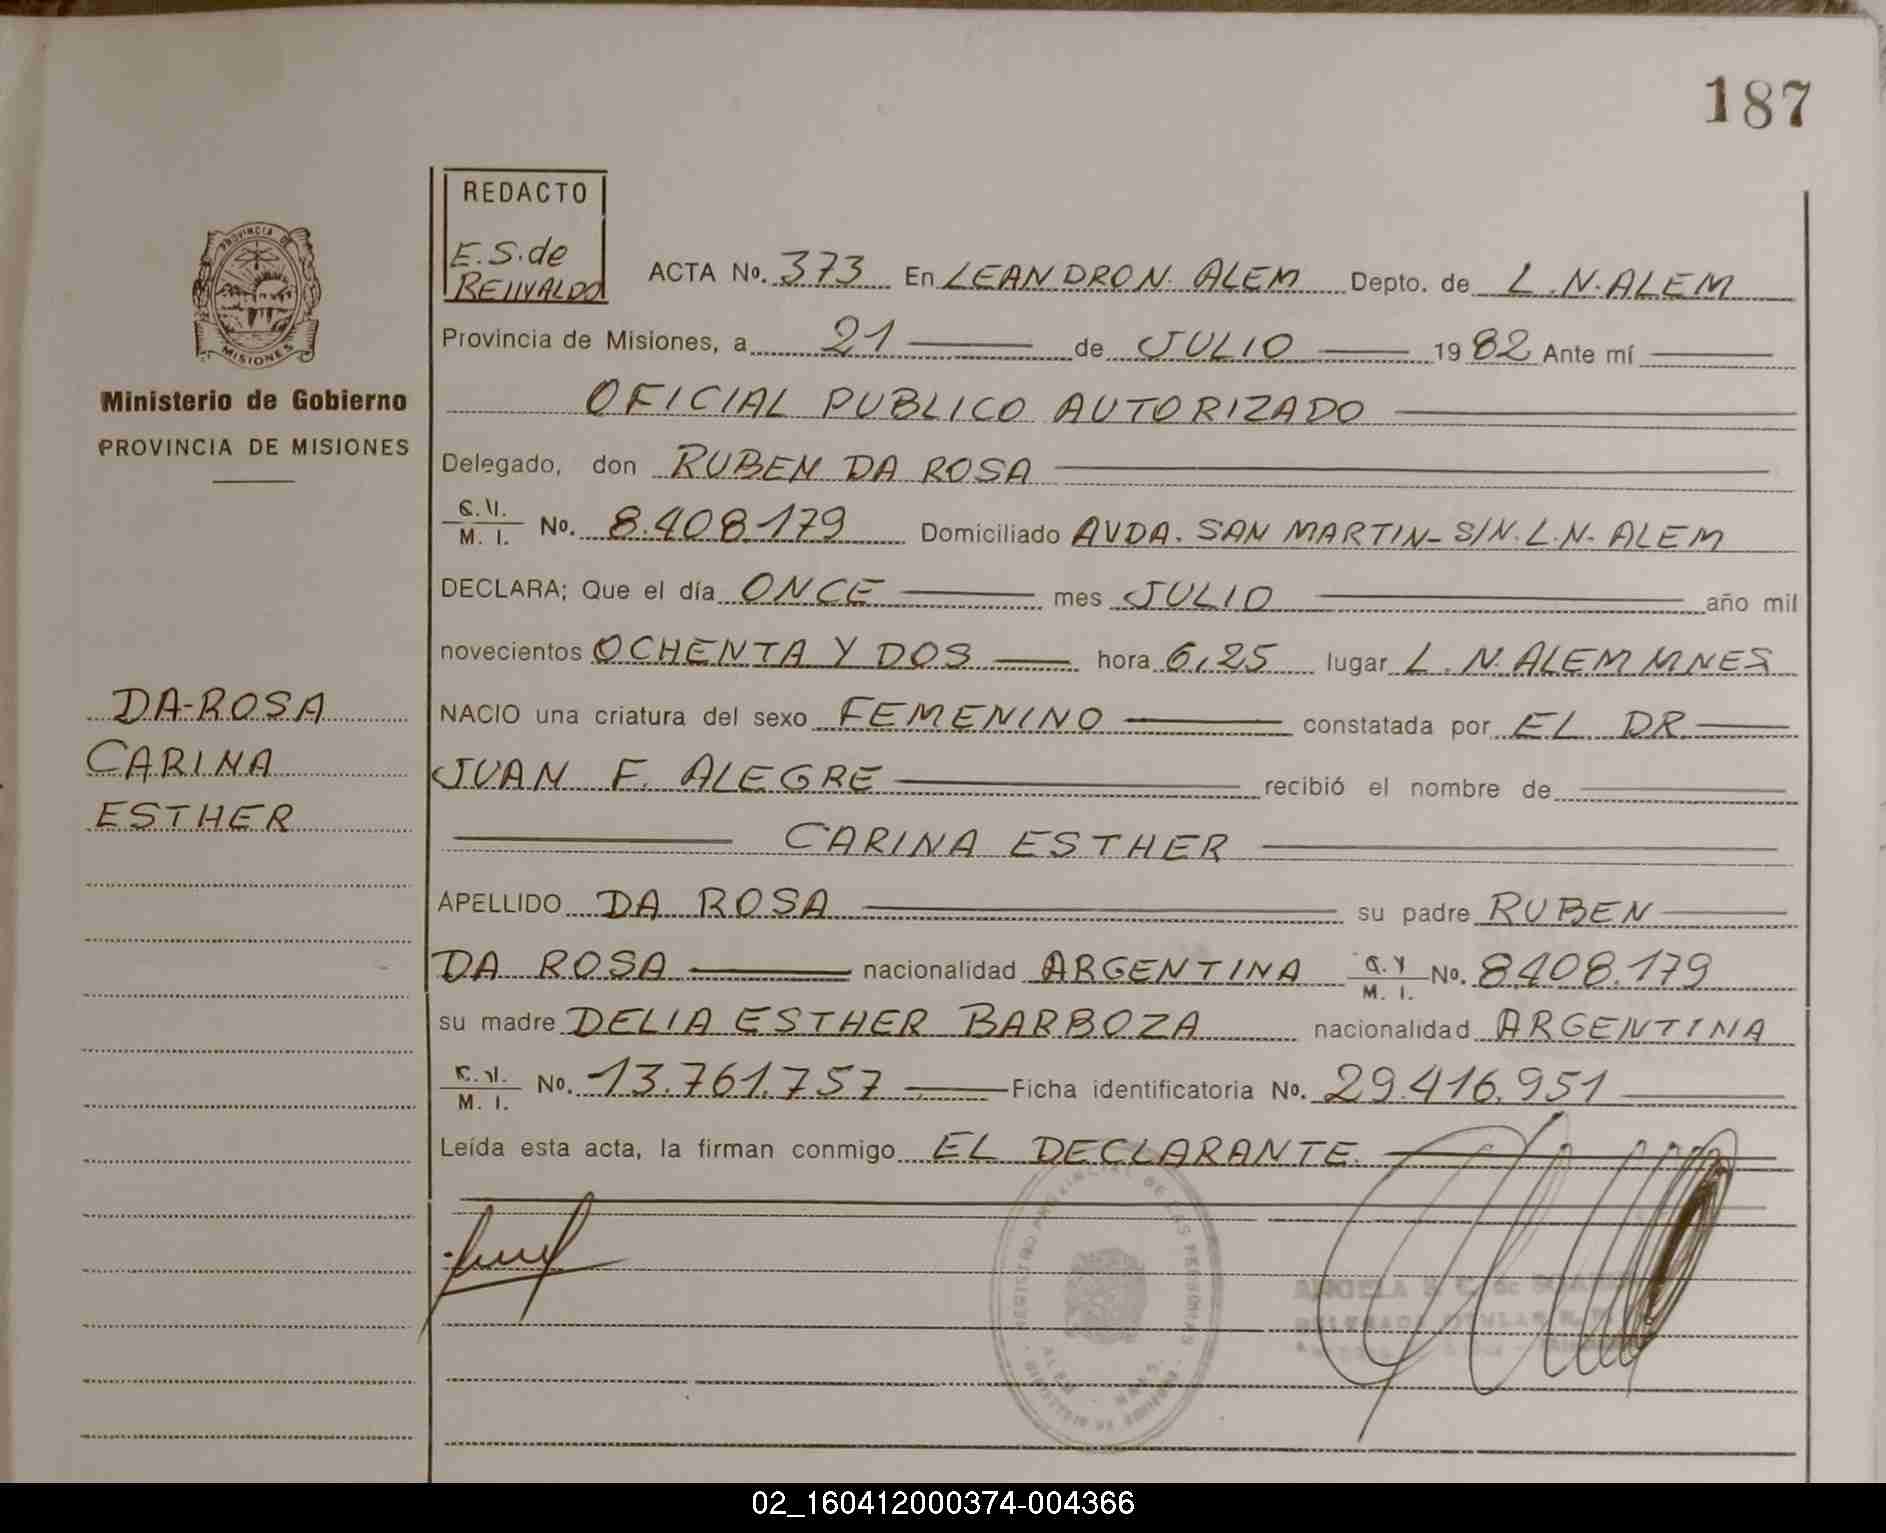 187
REDACTO
E.S. de
REINALDO
ACTA No. 373 En LEANDRO N. ALEM Depto. de L.N. ALEM
Provincia de Misiones, a 21 de JULIO 1982 Ante mí
OFICIAL PUBLICO AUTORIZADO
Delegado, don RUBEN DA ROSA
M. I. No. 8.408.179 Domiciliado AVDA. SAN MARTIN-S/N. L.N. ALEM
DECLARA; Que el día ONCE mes JULIO año mil
novecientos OCHENTA Y DOS hora 6,25 lugar L.N. ALEM MNES
NACIO una criatura del sexo FEMENINO constatada por EL DR.
JUAN F. ALEGRE recibió el nombre de
CARINA ESTHER
APELLIDO DA ROSA su padre RUBEN
DA ROSA nacionalidad ARGENTINA M. I. No. 8.408.179
su madre DELIA ESTHER BARBOZA nacionalidad ARGENTINA
M. I. No. 13.761.757 Ficha identificatoria No. 29.416.951
Leída esta acta, la firman conmigo EL DECLARANTE.
PROVINCIA DE
MISIONES
Ministerio de Gobierno
PROVINCIA DE MISIONES
DA-ROSA
CARINA
ESTHER
02_160412000374-004366